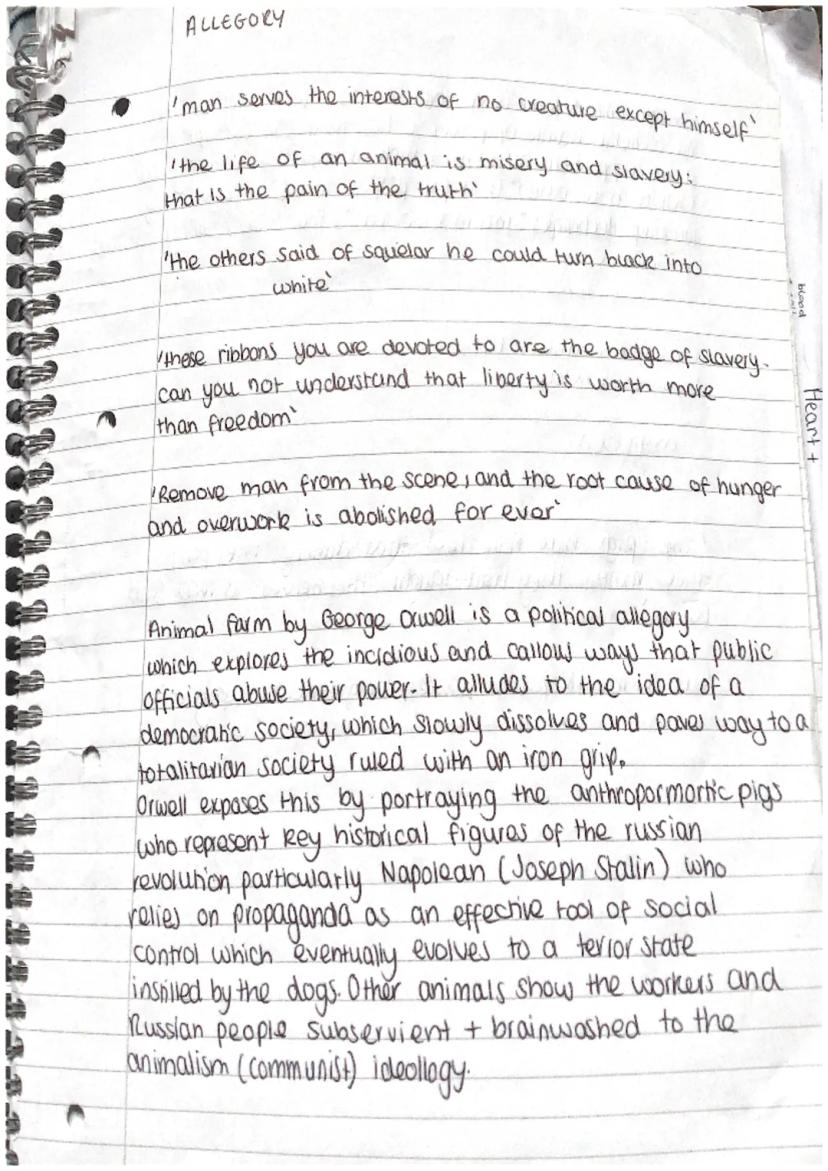 ALLEGORY
'man serves the interests of no creature except himself'
'the life of an animal is misery and slavery:
that is the pain of the truth'
'the others said of squelar he could turn black into
white'
'these ribbons you are devoted to are the badge of slavery.
can you not understand that liberty is worth more
than freedom'
'Remove man from the scene, and the root cause of hunger
and overwork is abolished for ever'
Animal farm by George Orwell is a political allegory
which explores the incidious and callous ways that public
officials abuse their power. It alludes to the idea of a
democratic society, which slowly dissolves and paves way to a
totalitarian society ruled with an iron grip.
Orwell exposes this by portraying the anthropormortic pigs
who represent key historical figures of the russian
revolution particularly Napolean (Joseph Stalin) who
relies on propaganda as an effective tool of social
control which eventually evolves to a terror state
instilled by the dogs. Other animals show the workers and
Russian people subservient + brainwashed to the
animalism (communist) ideollogy.
blood
Heart +